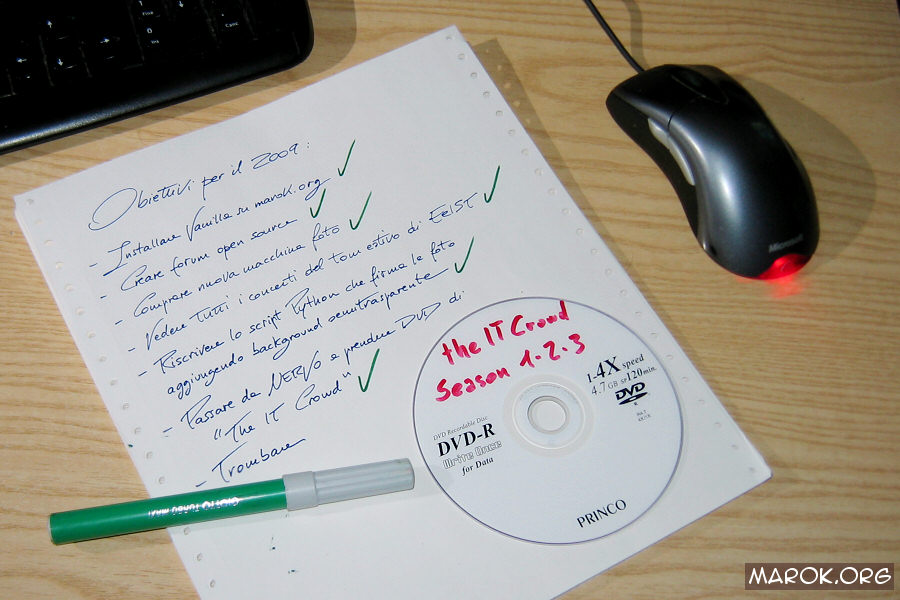 Obiettivi per il 2009:
- Installare Vanilla su marok.org
- Creare forum open source
- Comprare nuova macchina foto
- Vedere tutti i concerti del tour estivo di EelST
- Riscrivere lo script Python che firma le foto
aggiungendo background semitrasparente
- Passare da NERVO a prendere DVD di
"The IT Crowd"
- Trombare
the IT Crowd
Season 1-2-3
1-4X speed
4.7 GB SP 120 min.
DVD
R
DVD Recordable Disc
DVD-R
Write Once
for Data
PRINCO
GIOTTO TURBO MAXI
Microsoft
Fine
Ins
Canc
MAROK.ORG